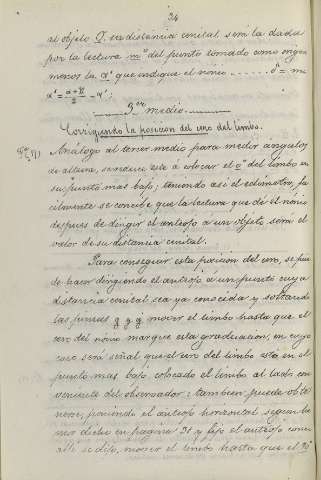 34
al objeto Q. su distancia cenital sera la dada
por la lectura m° del punto tomado como origen
menor la α' que indique el nonio ....... δ = m -
α' = (α+β)/2 - α';
3er medio.
Corrigiendo la posicion del cero del limbo.
Análogo al tercer medio para medir ángulos
de altura, se reduce este á colocar el 0° del limbo en
su punto mas bajo; teniendo asi el eclimetro, fa
cilmente se concibe que la lectura que dé el nonio
despues de dirigir el anteojo a un objeto, será el
valor de su distancia cenital.
Para conseguir esta posicion del cero, se pue
de hacer dirigiendo el anteojo á un punto cuya
distancia cenital sea ya conocida y soltando
las pinzas g g g mover el limbo hasta que el
cero del nonio marque esta graduacion, en cuyo
caso será señal que el cero del limbo está en el
punto mas bajo colocado el limbo al lado con
veniente del observador: tambien puede obte
nerse, poniendo el anteojo horizontal segun he
mos dicho en página 31 y fijo el anteojo como
alli se dijo, mover el limbo hasta que el 90°